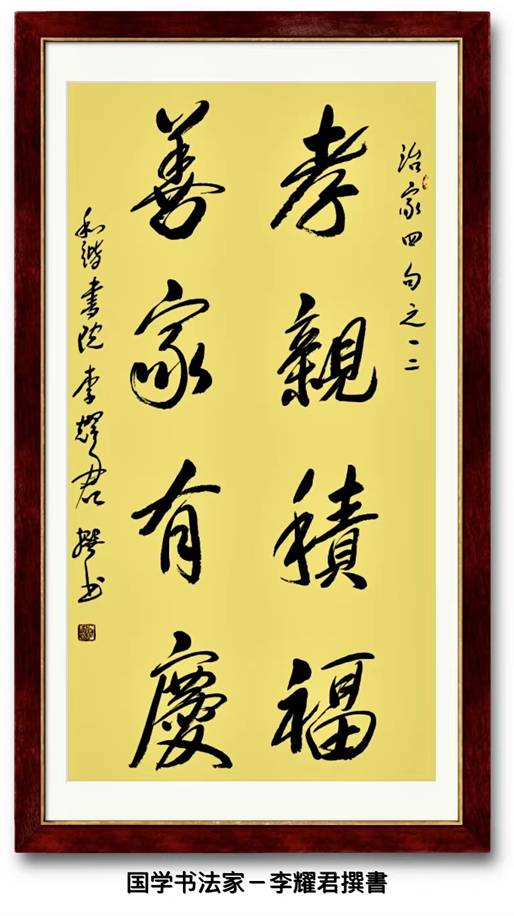 治家四句之一二
孝親積福
善家有慶
和諧書院李耀君撰书
国学书法家－李耀君撰書